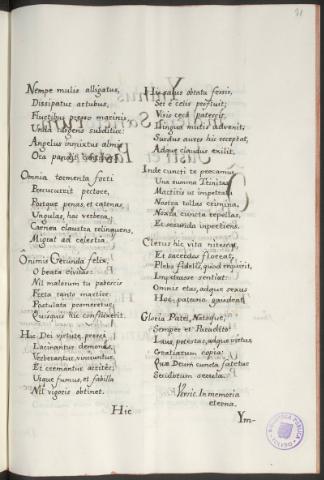 31
Nempe mulis alligatus,
Dissipatur actubus,
Fluctibus presso marinis
Unda surgens subditur:
Angelus immixtus almis
Ora pandis
Omnia tormenta forti
Percucurrit pectore,
Postque penas, et catenas,
Ungulas, hac verbera,
Carnea claustra relinquens,
Migrat ad celestia.
O nimis Gerunda felix,
O beata civitas:
Nil malorum tu patercis
Freta tanto martire:
Postulata promeretur
Quisquis hic confluxerit.
Hic Dei virtute, preeci
Lacinantur demones,
Verberantur, vinciuntur,
Et cremantur acriter;
Usque fumus, et fabilla
Nil vigoris obtinet.
Hic
Huic salus oblata fessis,
Sei è celis profluit;
Visis ceca patescit,
Lingua mutis advenit;
Surdus aures hic receptat,
Adque claudus exilit.
Inde cuncti te precamur,
Una summa Trinitas,
Mactitis ut impetratu
Nostra tollas crimina,
Noxia cuncta repellas,
Et secunda inpertiens.
Clerus hic vita nitescat,
Et sacerdos floreat;
Plebs fidelis, quod requirit,
Impetrasse sentiat:
Omnis etas, adque sexus
Hoc patrono gaudeat.
Gloria Patri, Natoque,
Semper et Paraclito:
Laus, potestas, adque virtus
Gratiarum copia:
Quae Deum cuncta fatetur
Seculorum secula.
Versic. In memoria
eterna.
Ym-
BIBLIOTECA PUBLICA